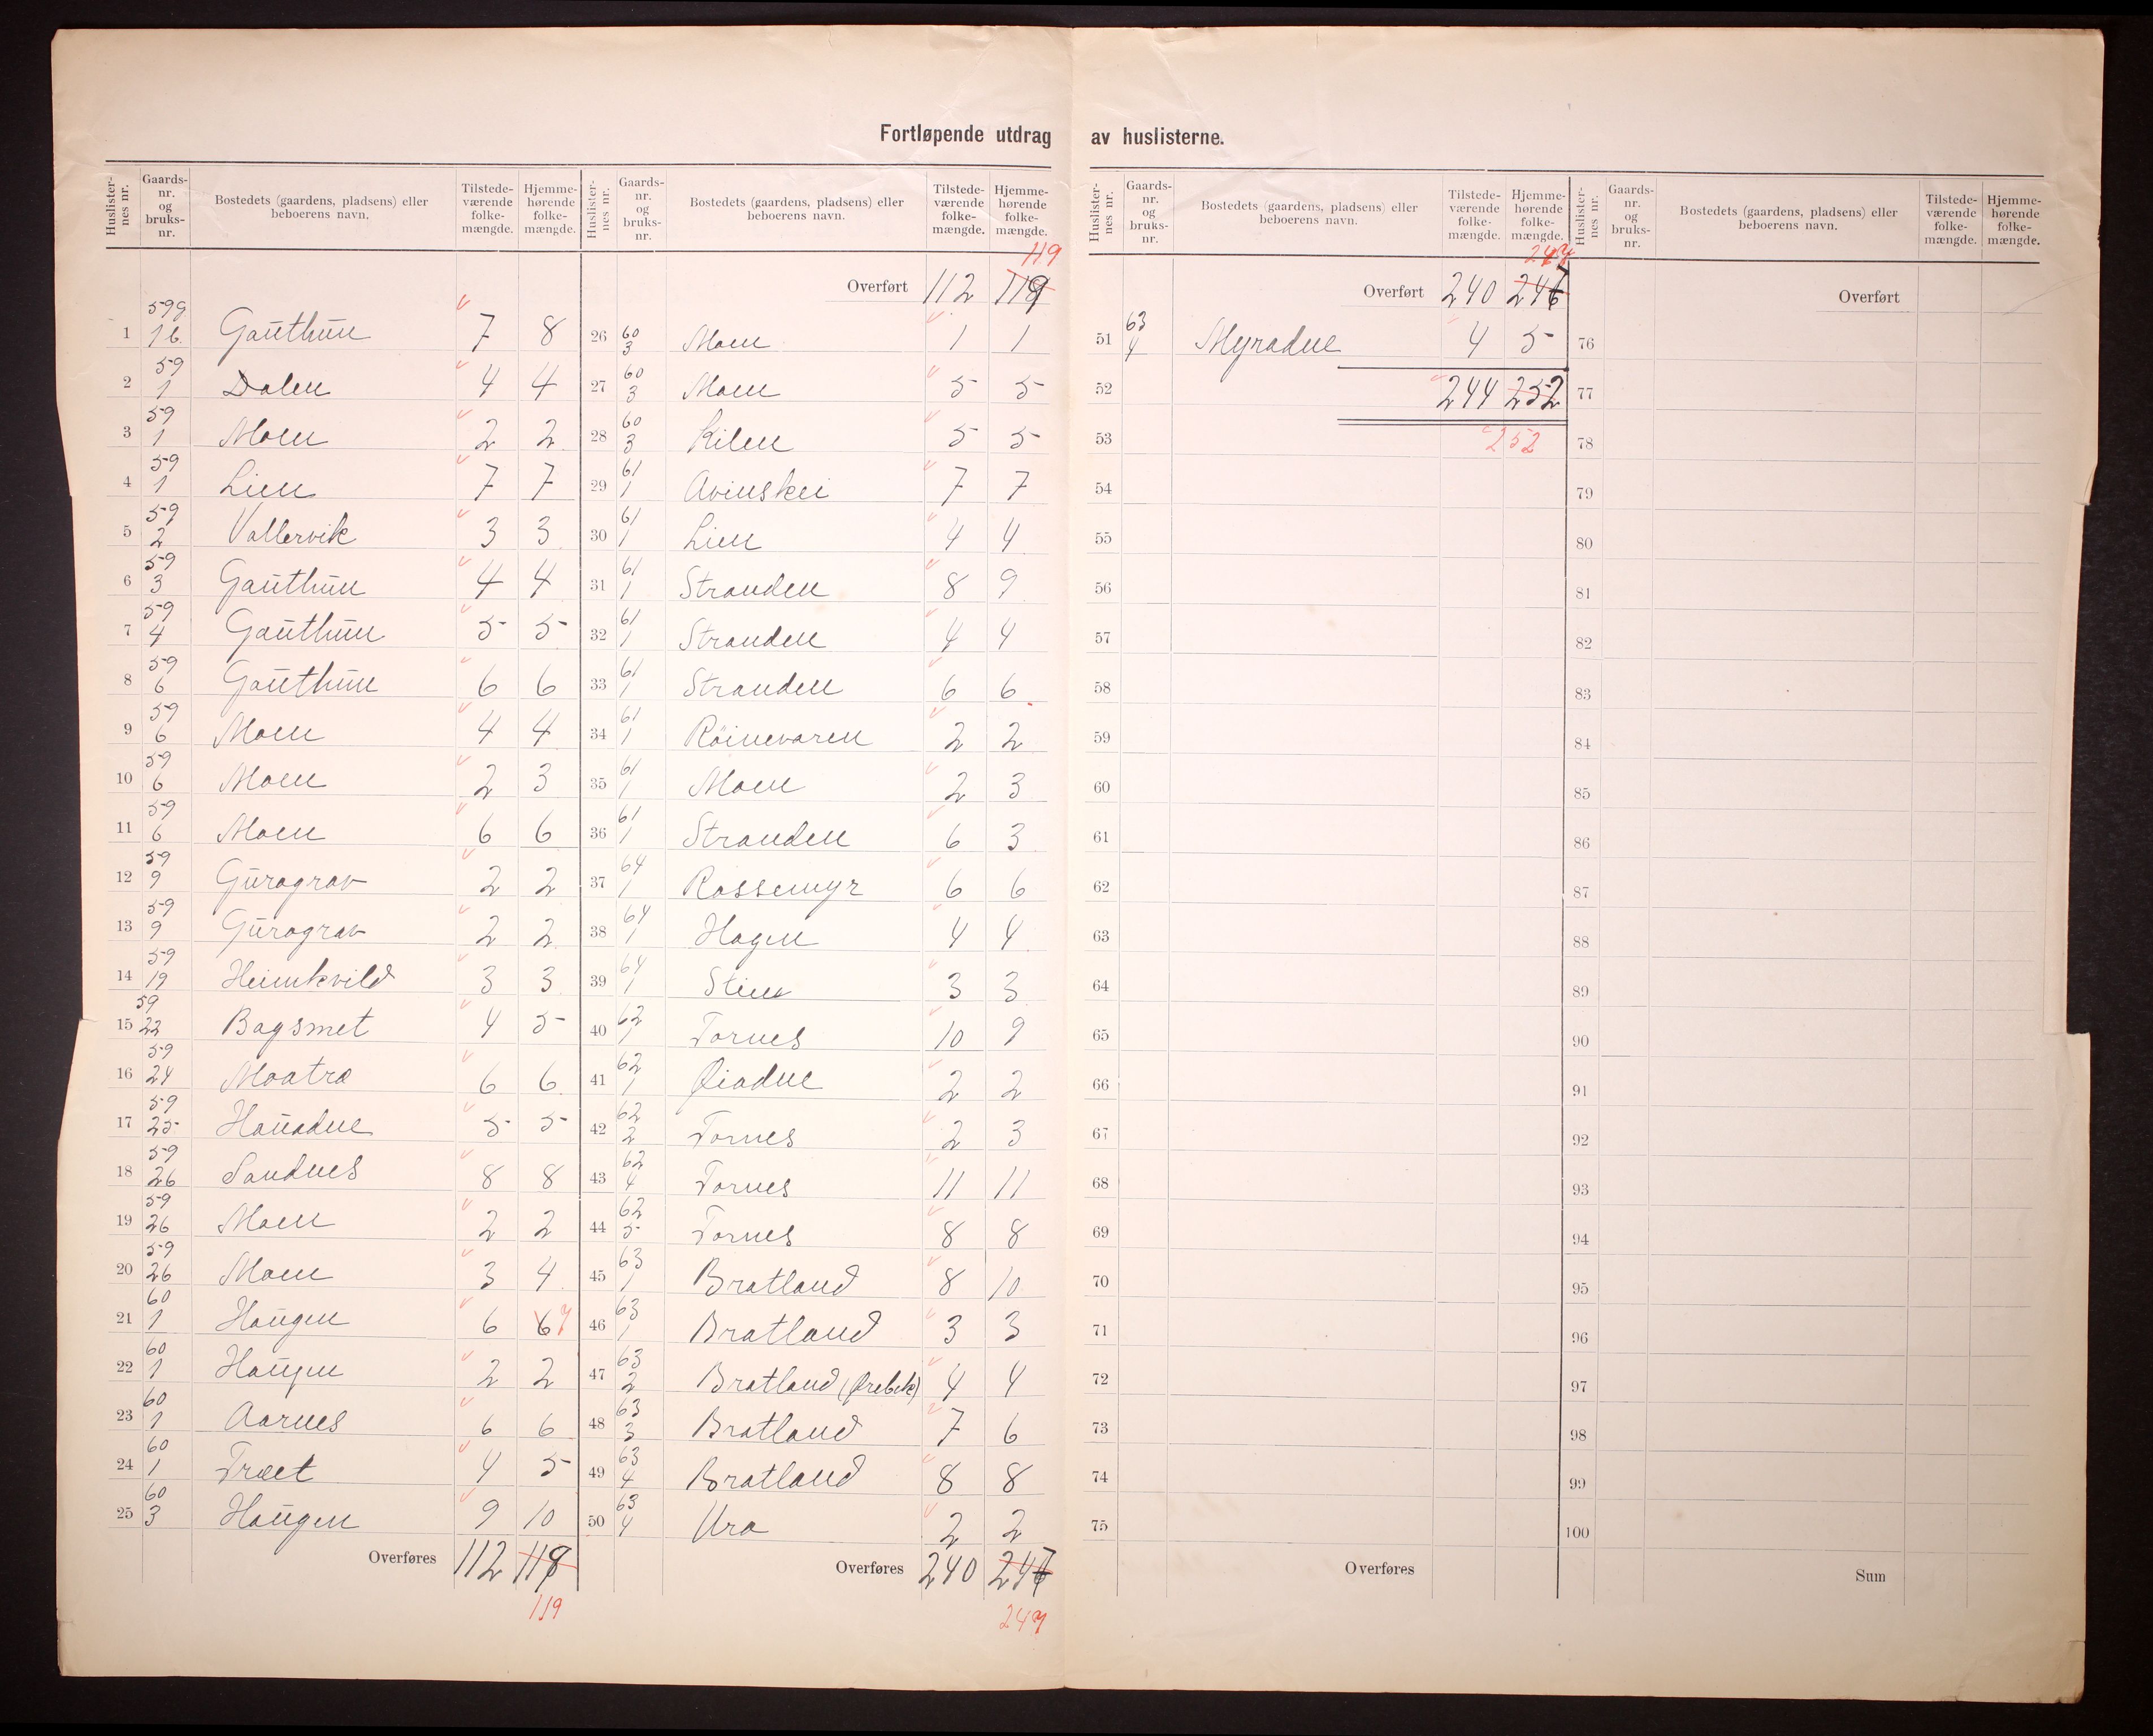 Fortløpende utdrag av huslisterne.
Huslisternes nr. Gaardsnr. og bruksnr. Bostedets (gaardens, pladsens) eller beboerens navn. Tilstedeværende folkemængde. Hjemmehørende folkemængde.
1 59 1 Gauthun 7 8
2 59 1 Dalen 4 4
3 59 1 Moen 2 2
4 59 1 Lien 7 7
5 59 2 Vallervik 3 3
6 59 3 Gauthun 4 4
7 59 4 Gauthun 5 5
8 59 6 Gauthun 6 6
9 59 6 Moen 4 4
10 59 6 Moen 2 3
11 59 6 Moen 6 6
12 59 9 Gurograv 2 2
13 59 9 Gurograv 2 2
14 59 19 Heimkvild 3 3
15 59 22 Bagsmet 4 5
16 59 24 Moatrø 6 6
17 59 25 Hauadne 5 5
18 59 26 Sandnes 8 8
19 59 26 Moen 2 2
20 59 26 Moen 3 4
21 60 1 Haugen 6 6 7
22 60 1 Haugen 2 2
23 60 1 Aarnes 6 6
24 60 1 Træet 4 5
25 60 3 Haugen 9 10
Overføres 112 118
119
Huslisternes nr. Gaardsnr. og bruksnr. Bostedets (gaardens, pladsens) eller beboerens navn. Tilstedeværende folkemængde. Hjemmehørende folkemængde.
119
Overført 112 118
26 60 3 Moen 1 1
27 60 3 Moen 5 5
28 60 3 Kilen 5 5
29 61 1 Avinskei 7 7
30 61 1 Lien 4 4
31 61 1 Stranden 8 9
32 61 1 Stranden 4 4
33 61 1 Stranden 6 6
34 61 1 Röinevaren 2 2
35 61 1 Moen 2 3
36 61 1 Stranden 6 3
37 64 1 Rossemyr 6 6
38 64 1 Hagen 4 4
39 64 1 Stien 3 3
40 62 1 Tornes 10 9
41 62 1 Øiadne 2 2
42 62 2 Tornes 2 3
43 62 4 Tornes 11 11
44 62 5 Tornes 8 8
45 63 1 Bratland 8 10
46 63 1 Bratland 3 3
47 63 2 Bratland 4 4
48 63 3 Bratland 7 6
49 63 4 Bratland 8 8
50 63 4 Ura 2 2
Overføres 240 246
247
Huslisternes nr. Gaardsnr. og bruksnr. Bostedets (gaardens, pladsens) eller beboerens navn. Tilstedeværende folkemængde. Hjemmehørende folkemængde.
247
Overført 240 246
51 63 4 Myradne 4 5
52 244 252
53 252
54
55
56
57
58
59
60
61
62
63
64
65
66
67
68
69
70
71
72
73
74
75
Overføres
Huslisternes nr. Gaardsnr. og bruksnr. Bostedets (gaardens, pladsens) eller beboerens navn. Tilstedeværende folkemængde. Hjemmehørende folkemængde.
Overført
76
77
78
79
80
81
82
83
84
85
86
87
88
89
90
91
92
93
94
95
96
97
98
99
100
Sum